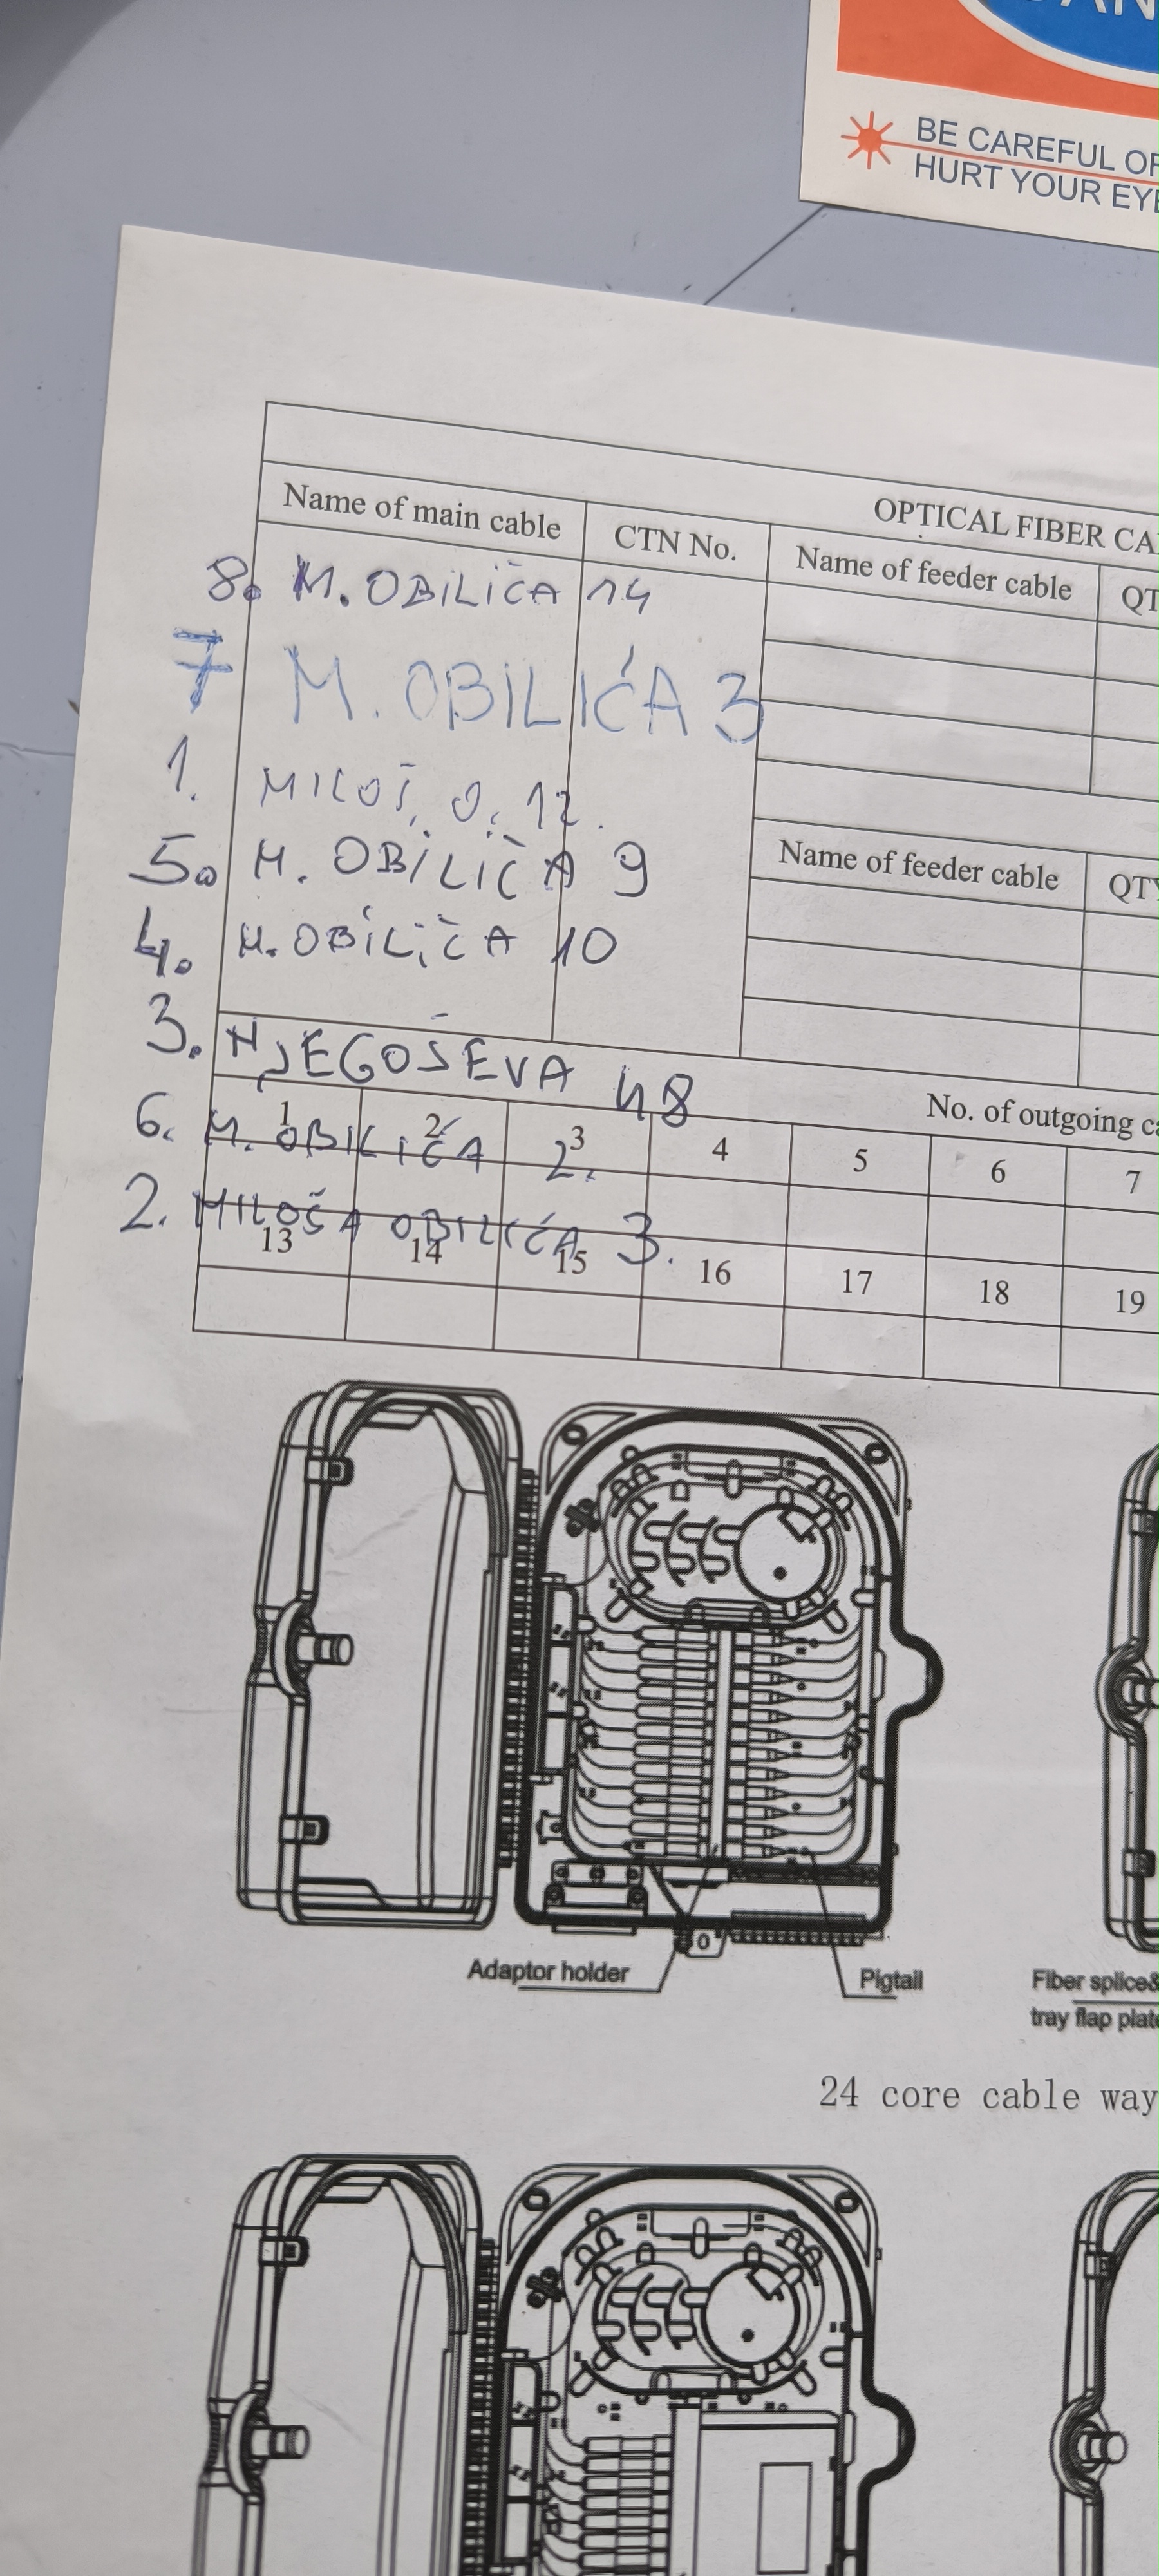 BE CAREFUL OF
HURT YOUR EYE
OPTICAL FIBER CA
Name of main cable CTN No. Name of feeder cable QT
8. M. OBILIČA 14
7 M. OBILIĆA 3
1. MILOŠ. O. 12.
Name of feeder cable QTY
5. M. OBILIČA 9
4. M. OBILIČA 10
3. NJEGOŠEVA 48
No. of outgoing ca
1 2 3 4 5 6 7
6. M. OBILIĆA 2.
2. MILOŠA OBILIĆA 3.
13 14 15 16 17 18 19
Adaptor holder Pigtail
Fiber splice&
tray flap plate
24 core cable way